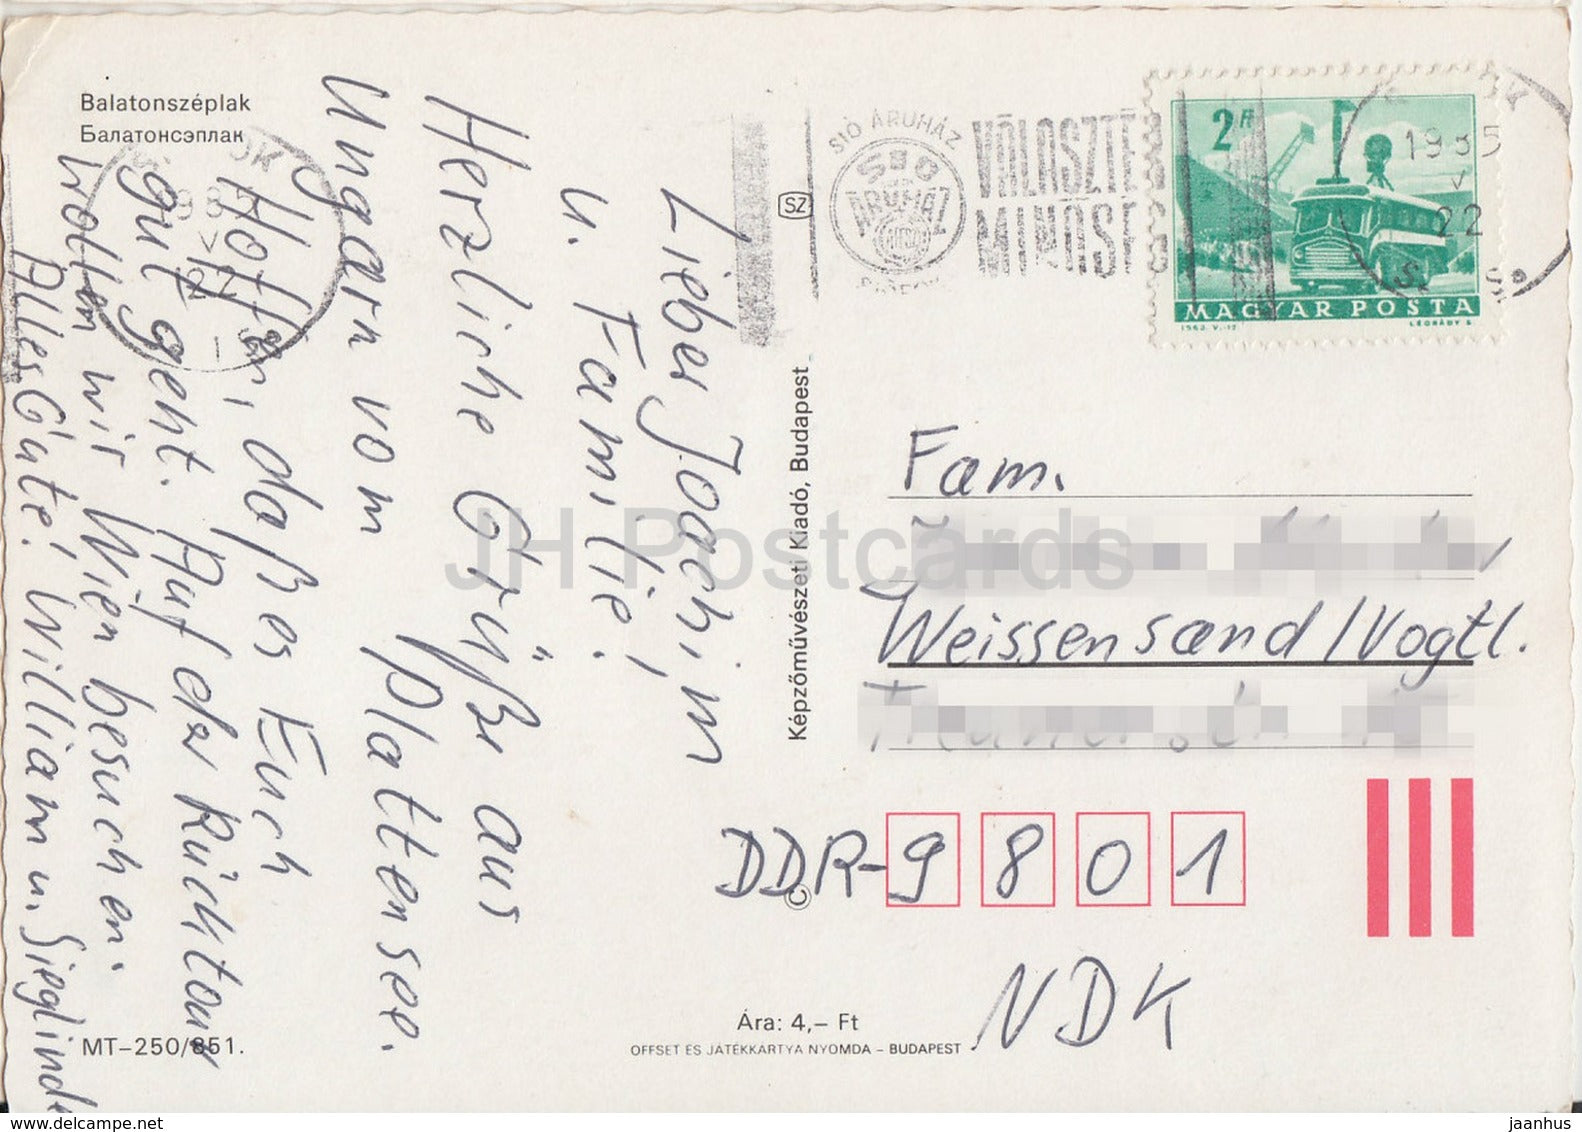 Balatonszéplak
Балатонсэплак
Lieber Joachim
u. Familie!
Herzliche Grüße aus
Ungarn vom Plattensee.
Hoffen, daß es Euch
gut geht. Auf der Rücktour
wollen wir Wien besuchen.
Alles Gute! William u. Sieglinde
SZ
SIÓ ÁRUHÁZ
SIÓ
ÁRUHÁZ
VÁLASZTÉK
MINŐSÉG
1985
V
22
2 Ft
MAGYAR POSTA
1963. V.-
LÉGRÁDY S.
Képzőművészeti Kiadó, Budapest
Fam.
Weissensand/Vogtl.
DDR-9801
NDK
©
MT–250/851.
Ára: 4,– Ft
OFFSET ÉS JÁTÉKKÁRTYA NYOMDA – BUDAPEST
JH Postcards
www.delcampe.net
jaanhus